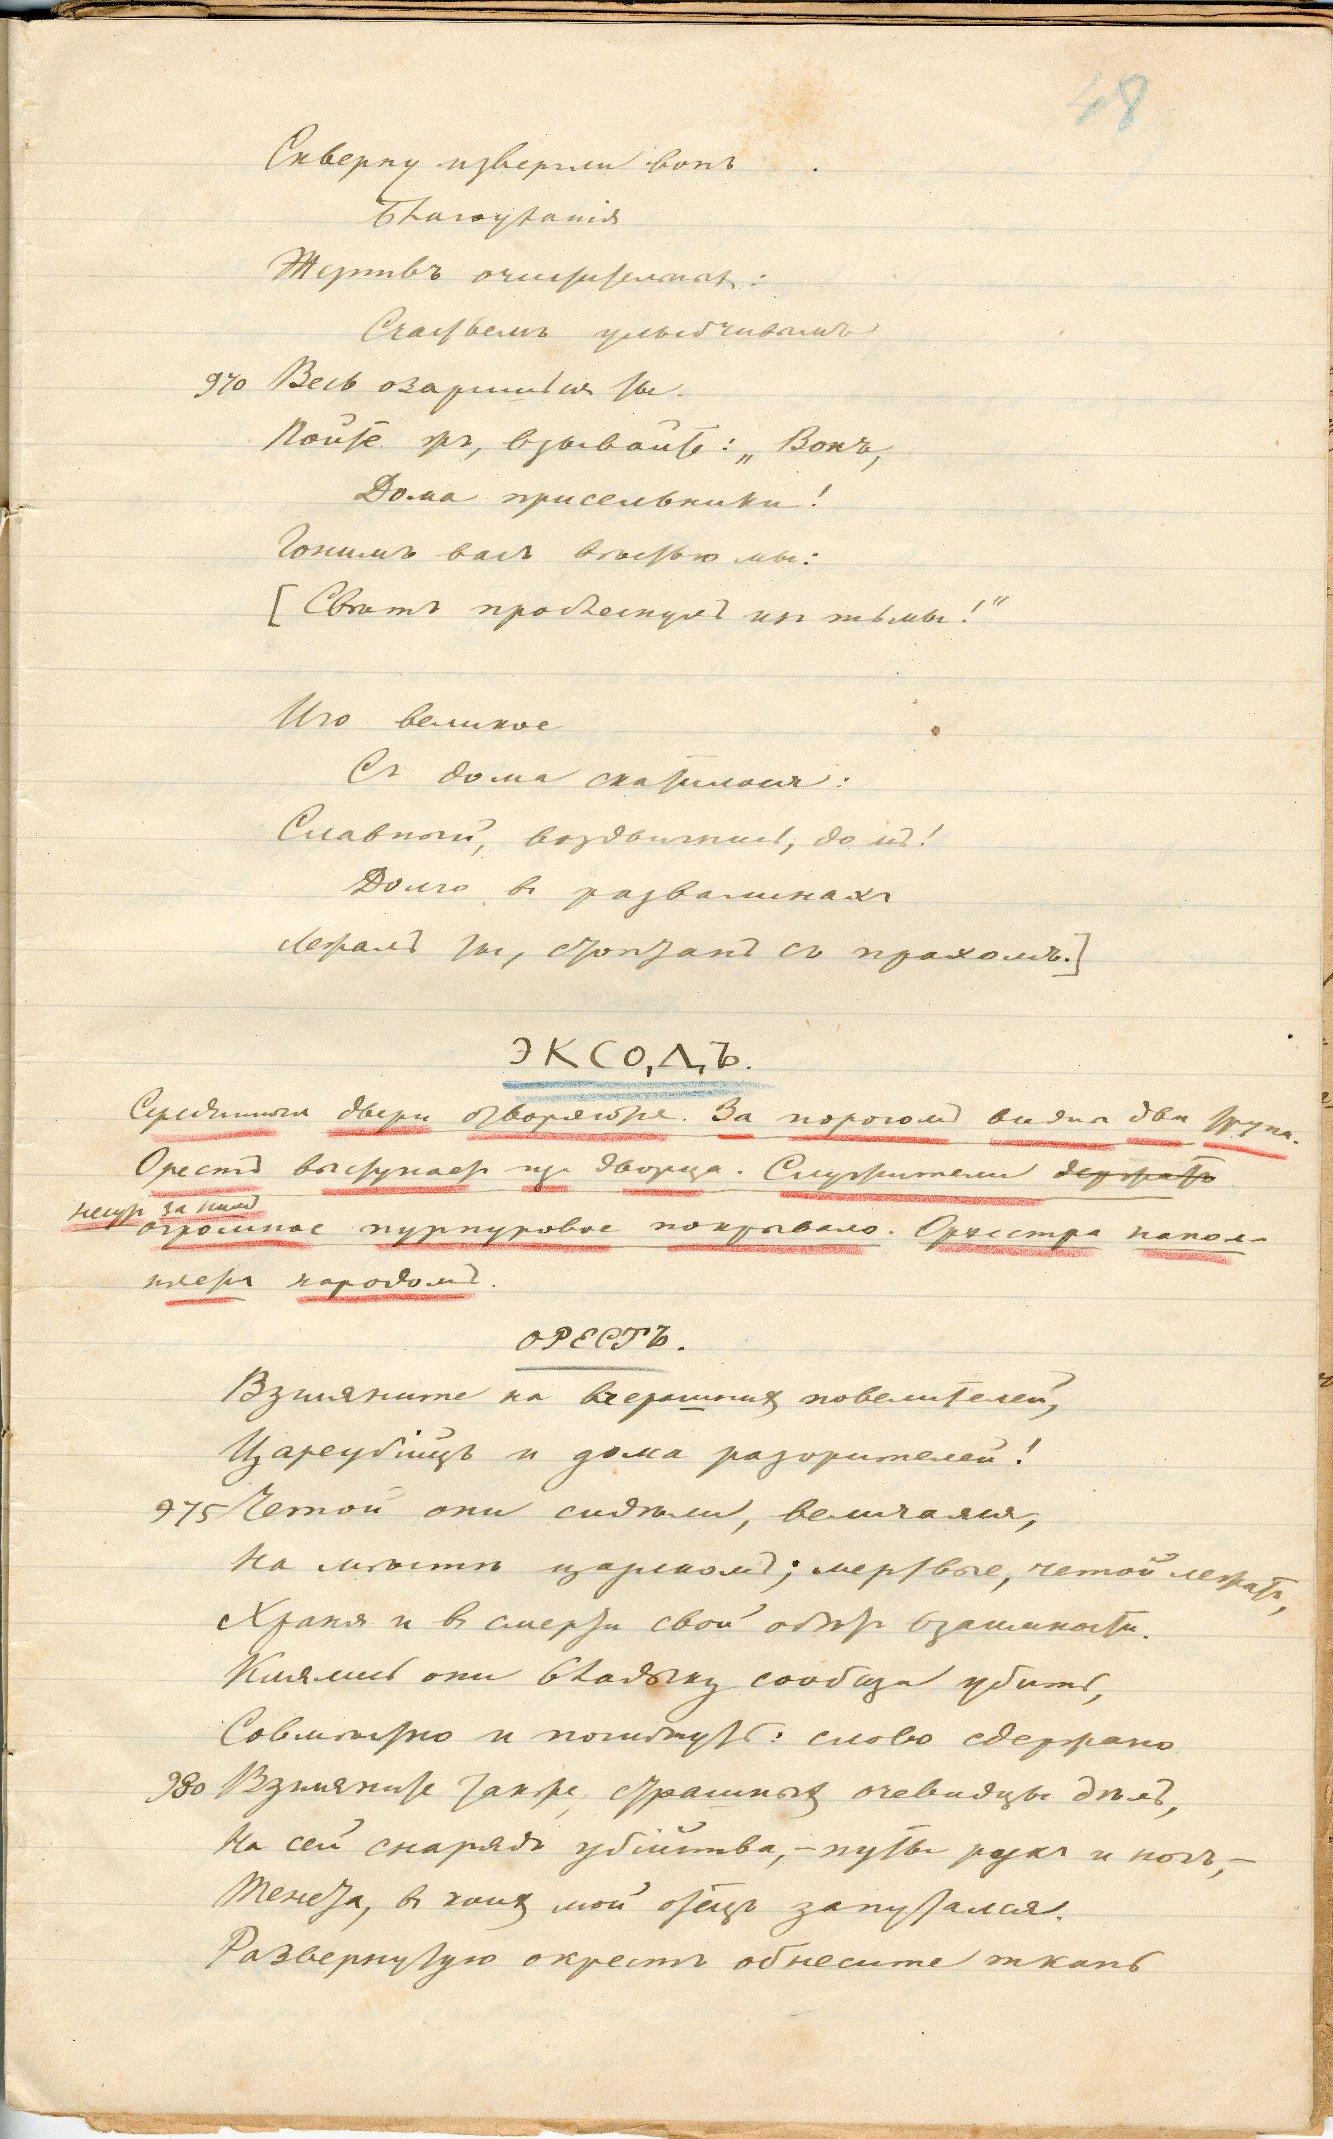 48
Скверну извергли вонъ
Благоуханія
Жертвъ очистительныхъ:
Счастьемъ улыбчивымъ
970 Весь озаришься ты.
Пойте жъ, взывайте: „Вонъ,
Дома присельники!
Гонимъ васъ властью мы:
[Свѣтъ проблеснулъ изъ тьмы!“
Иго великое
Съ дома скатилося:
Славный, воздвигнись, домъ!
Долго въ развалинахъ
Лежалъ ты, стоптанъ съ прахомъ.]
ЭКСОДЪ.
Срединныя двери отворяются. За порогомъ видны два трупа.
Орестъ выступаетъ изъ дворца. Служители держатъ
несутъ за нимъ
огромное пурпуровое покрывало. Орхестра напол-
няется народомъ.
ОРЕСТЪ.
Взгляните на вчерашнихъ повелителей,
Цареубійцъ и дома разорителей!
975 Четой они сидѣли, величаяся,
На мѣстѣ царскомъ; мертвые, четой лежатъ,
Храня и въ смерти свой обѣтъ взаимности.
Клялись они владыку сообща убить,
Совмѣстно и погибнуть: слово сдержано
980 Взгляните также, страшныхъ очевидцы дѣлъ,
На сей снарядъ убійства, – путы рукъ и ногъ, –
Тенета, въ коихъ мой отецъ запутался.
Развернутую окрестъ обнесите ткань